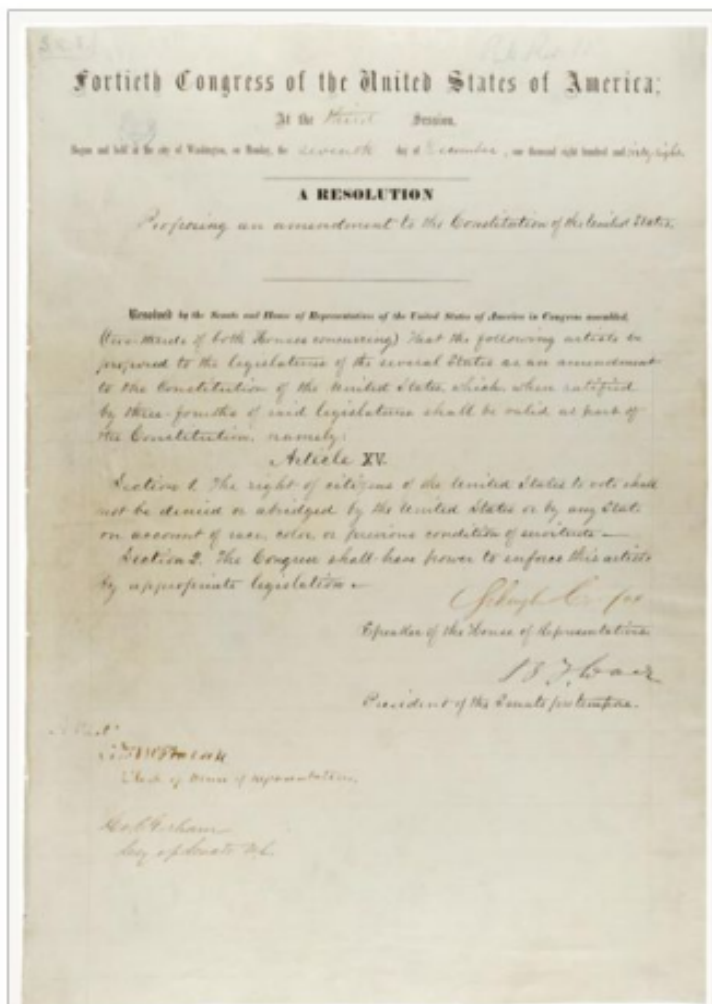 Fortieth Congress of the United States of America;
At the third Session,
Begun and held at the city of Washington, on Monday, the seventh day of December, one thousand eight hundred and sixty-eight.
A RESOLUTION
Proposing an amendment to the Constitution of the United States.
Resolved by the Senate and House of Representatives of the United States of America in Congress assembled,
(two-thirds of both Houses concurring) That the following article be
proposed to the legislatures of the several States as an amendment
to the Constitution of the United States, which, when ratified
by three-fourths of said legislatures shall be valid as part of
the Constitution, namely:
Article XV.
Section 1. The right of citizens of the United States to vote shall
not be denied or abridged by the United States or by any State
on account of race, color, or previous condition of servitude—
Section 2. The Congress shall have power to enforce this article
by appropriate legislation—
Schuyler Colfax
Speaker of the House of Representatives.
B F Wade
President of the Senate pro tempore.
Attest
Clerk of House of Representatives.
Geo C Gorham
Secy of Senate U.S.